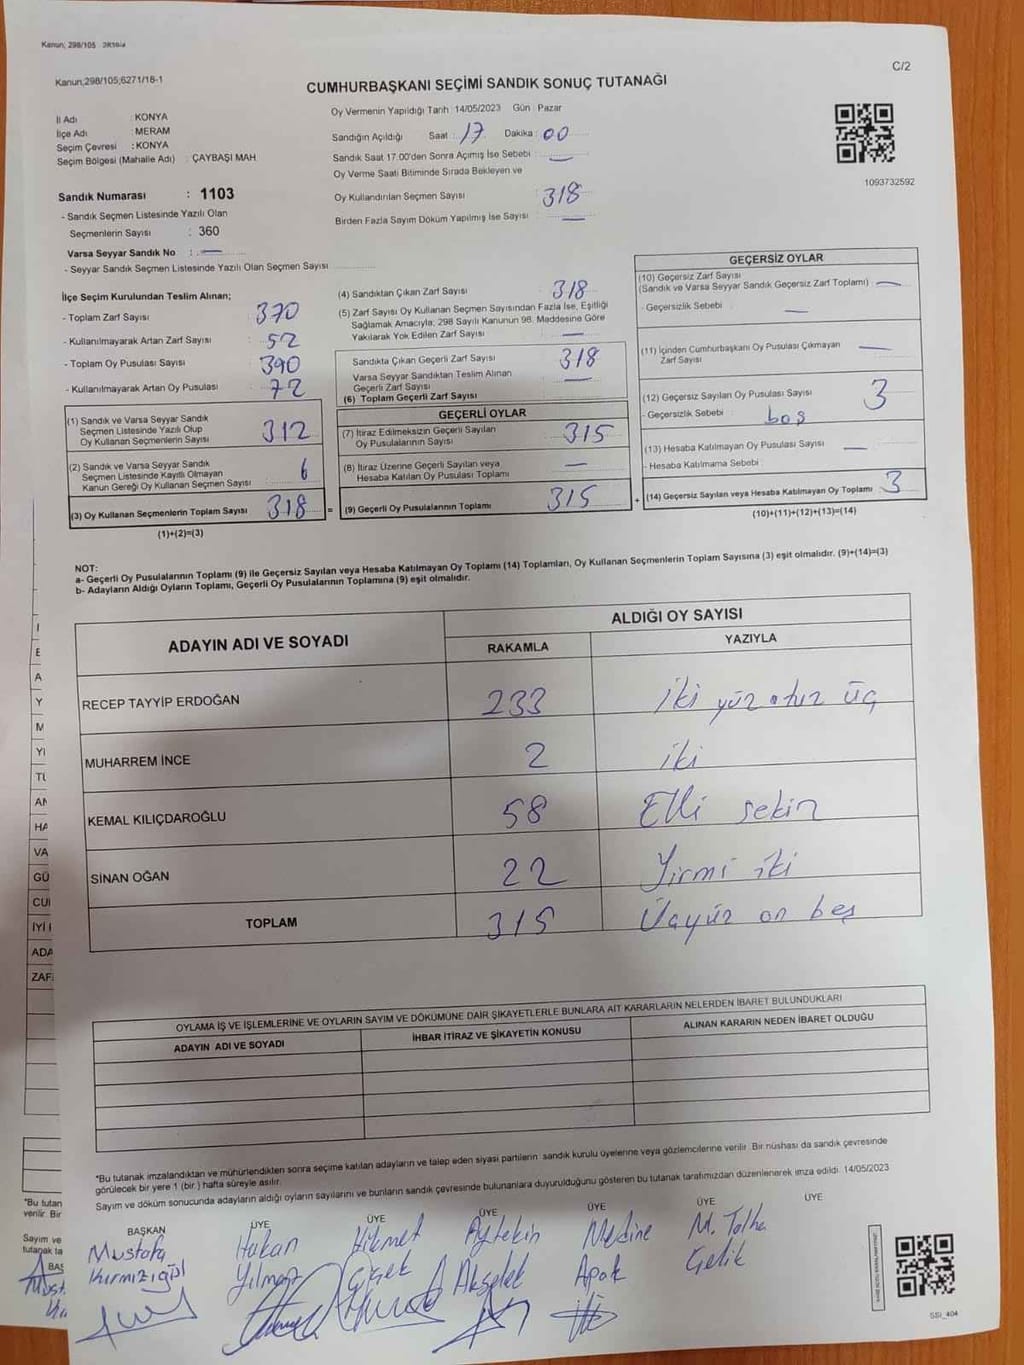 Kanun; 298/105
Kanun;298/105;6271/18-1
C/2
CUMHURBAŞKANI SEÇİMİ SANDIK SONUÇ TUTANAĞI
İl Adı : KONYA
İlçe Adı : MERAM
Seçim Çevresi : KONYA
Seçim Bölgesi (Mahalle Adı) : ÇAYBAŞI MAH
Oy Vermenin Yapıldığı Tarih :14/05/2023 Gün : Pazar
Sandığın Açıldığı Saat : 17 Dakika : 00
Sandık Saat 17.00'den Sonra Açımış İse Sebebi : —
Oy Verme Saati Bitiminde Sırada Bekleyen ve
Oy Kullandırılan Seçmen Sayısı 318
Birden Fazla Sayım Döküm Yapılmış İse Sayısı —
1093732592
Sandık Numarası : 1103
- Sandık Seçmen Listesinde Yazılı Olan
Seçmenlerin Sayısı : 360
Varsa Seyyar Sandık No : —
- Seyyar Sandık Seçmen Listesinde Yazılı Olan Seçmen Sayısı
İlçe Seçim Kurulundan Teslim Alınan;
- Toplam Zarf Sayısı : 370
- Kullanılmayarak Artan Zarf Sayısı : 52
- Toplam Oy Pusulası Sayısı : 390
- Kullanılmayarak Artan Oy Pusulası : 72
(1) Sandık ve Varsa Seyyar Sandık
Seçmen Listesinde Yazılı Olup
Oy Kullanan Seçmenlerin Sayısı 312
(2) Sandık ve Varsa Seyyar Sandık
Seçmen Listesinde Kayıtlı Olmayan
Kanun Gereği Oy Kullanan Seçmen Sayısı 6
(3) Oy Kullanan Seçmenlerin Toplam Sayısı 318 =
(1)+(2)=(3)
(4) Sandıktan Çıkan Zarf Sayısı 318
(5) Zarf Sayısı Oy Kullanan Seçmen Sayısından Fazla İse, Eşitliği
Sağlamak Amacıyla, 298 Sayılı Kanunun 98. Maddesine Göre
Yakılarak Yok Edilen Zarf Sayısı —
Sandıkta Çıkan Geçerli Zarf Sayısı 318
Varsa Seyyar Sandıktan Teslim Alınan
Geçerli Zarf Sayısı —
(6) Toplam Geçerli Zarf Sayısı
GEÇERLİ OYLAR
(7) İtiraz Edilmeksizin Geçerli Sayılan
Oy Pusulalarının Sayısı 315
(8) İtiraz Üzerine Geçerli Sayılan veya
Hesaba Katılan Oy Pusulası Toplamı —
(9) Geçerli Oy Pusulalarının Toplamı 315 +
GEÇERSİZ OYLAR
(10) Geçersiz Zarf Sayısı
(Sandık ve Varsa Seyyar Sandık Geçersiz Zarf Toplamı) —
- Geçersizlik Sebebi : —
(11) İçinden Cumhurbaşkanı Oy Pusulası Çıkmayan
Zarf Sayısı —
(12) Geçersiz Sayılan Oy Pusulası Sayısı 3
- Geçersizlik Sebebi : boş
(13) Hesaba Katılmayan Oy Pusulası Sayısı —
- Hesaba Katılmama Sebebi :
(14) Geçersiz Sayılan veya Hesaba Katılmayan Oy Toplamı 3
(10)+(11)+(12)+(13)=(14)
NOT:
a- Geçerli Oy Pusulalarının Toplamı (9) ile Geçersiz Sayılan veya Hesaba Katılmayan Oy Toplamı (14) Toplamları, Oy Kullanan Seçmenlerin Toplam Sayısına (3) eşit olmalıdır. (9)+(14)=(3)
b- Adayların Aldığı Oyların Toplamı, Geçerli Oy Pusulalarının Toplamına (9) eşit olmalıdır.
ADAYIN ADI VE SOYADI
ALDIĞI OY SAYISI
RAKAMLA YAZIYLA
RECEP TAYYİP ERDOĞAN 233 iki yüz otuz üç
MUHARREM İNCE 2 iki
KEMAL KILIÇDAROĞLU 58 Elli sekiz
SİNAN OĞAN 22 Yirmi iki
TOPLAM 315 Üçyüz on beş
OYLAMA İŞ VE İŞLEMLERİNE VE OYLARIN SAYIM VE DÖKÜMÜNE DAİR ŞİKAYETLERLE BUNLARA AİT KARARLARIN NELERDEN İBARET BULUNDUKLARI
ADAYIN ADI VE SOYADI İHBAR İTİRAZ VE ŞİKAYETİN KONUSU ALINAN KARARIN NEDEN İBARET OLDUĞU
*Bu tutanak imzalandıktan ve mühürlendikten sonra seçime katılan adayların ve talep eden siyasi partilerin sandık kurulu üyelerine veya gözlemcilerine verilir. Bir nüshası da sandık çevresinde
görülecek bir yere 1 (bir ) hafta süreyle asılır.
Sayım ve döküm sonucunda adayların aldığı oyların sayılarını ve bunların sandık çevresinde bulunanlara duyurulduğunu gösteren bu tutanak tarafımızdan düzenlenerek imza edildi. 14/05/2023
BAŞKAN ÜYE ÜYE ÜYE ÜYE ÜYE ÜYE
Mustafa Hakan Hikmet Aytekin Medine M. Talha
Kırmızıgül Yılmaz Çiçek Akşelek Apak Çelik
SSI_404